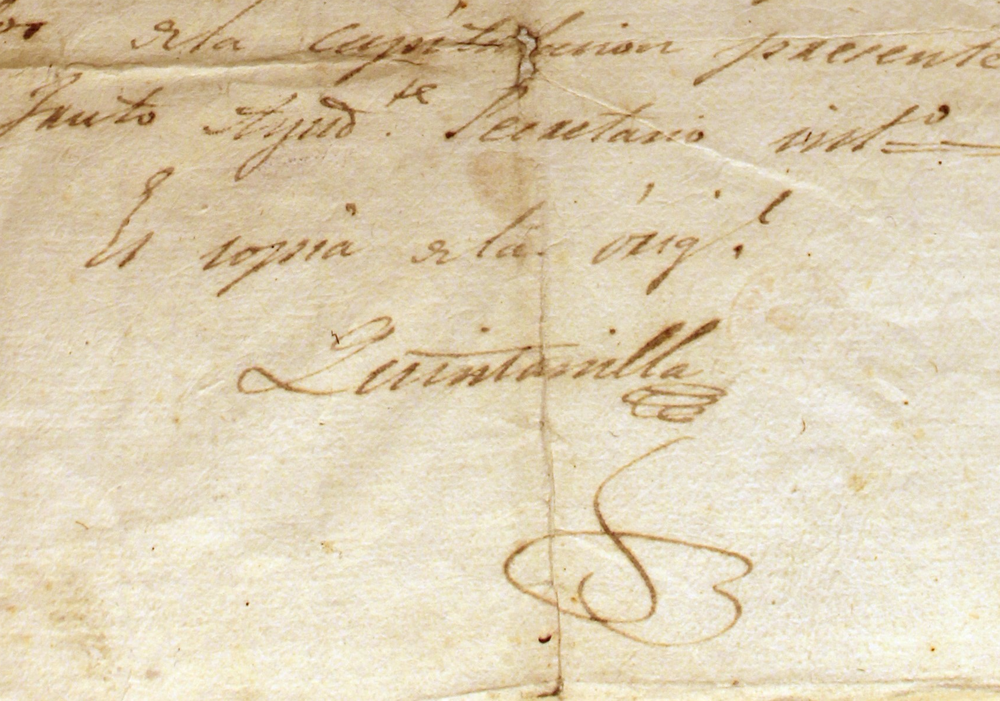 dela capitulacion presente
Ayudte. Secretario intº
Es copia dela orig.l
Quintanilla